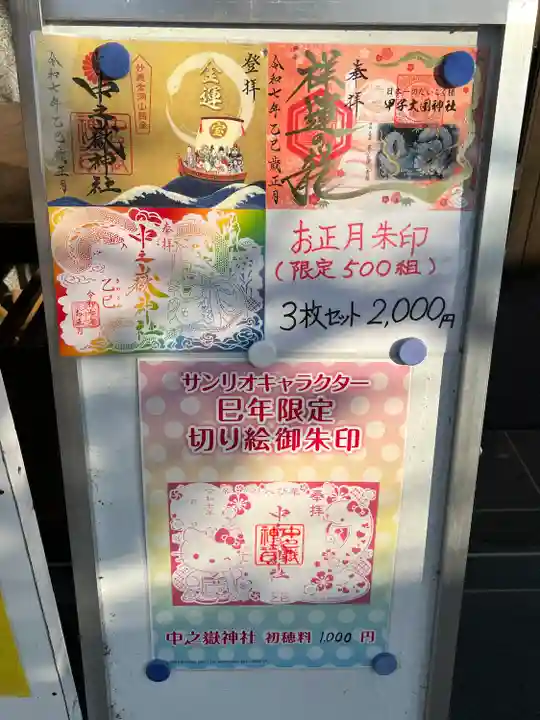 登拝
金運
宝
妙義金洞山鎮座
中之嶽神社
令和七年乙巳歳正月
奉拝
日本一のだいこく様
甲子大国神社
令和七年乙巳歳正月
奉拝
中之嶽神社
乙巳
お正月朱印
(限定500組)
3枚セット 2,000円
サンリオキャラクター
巳年限定
切り絵御朱印
奉拝
中之嶽神社 初穂料 1,000 円